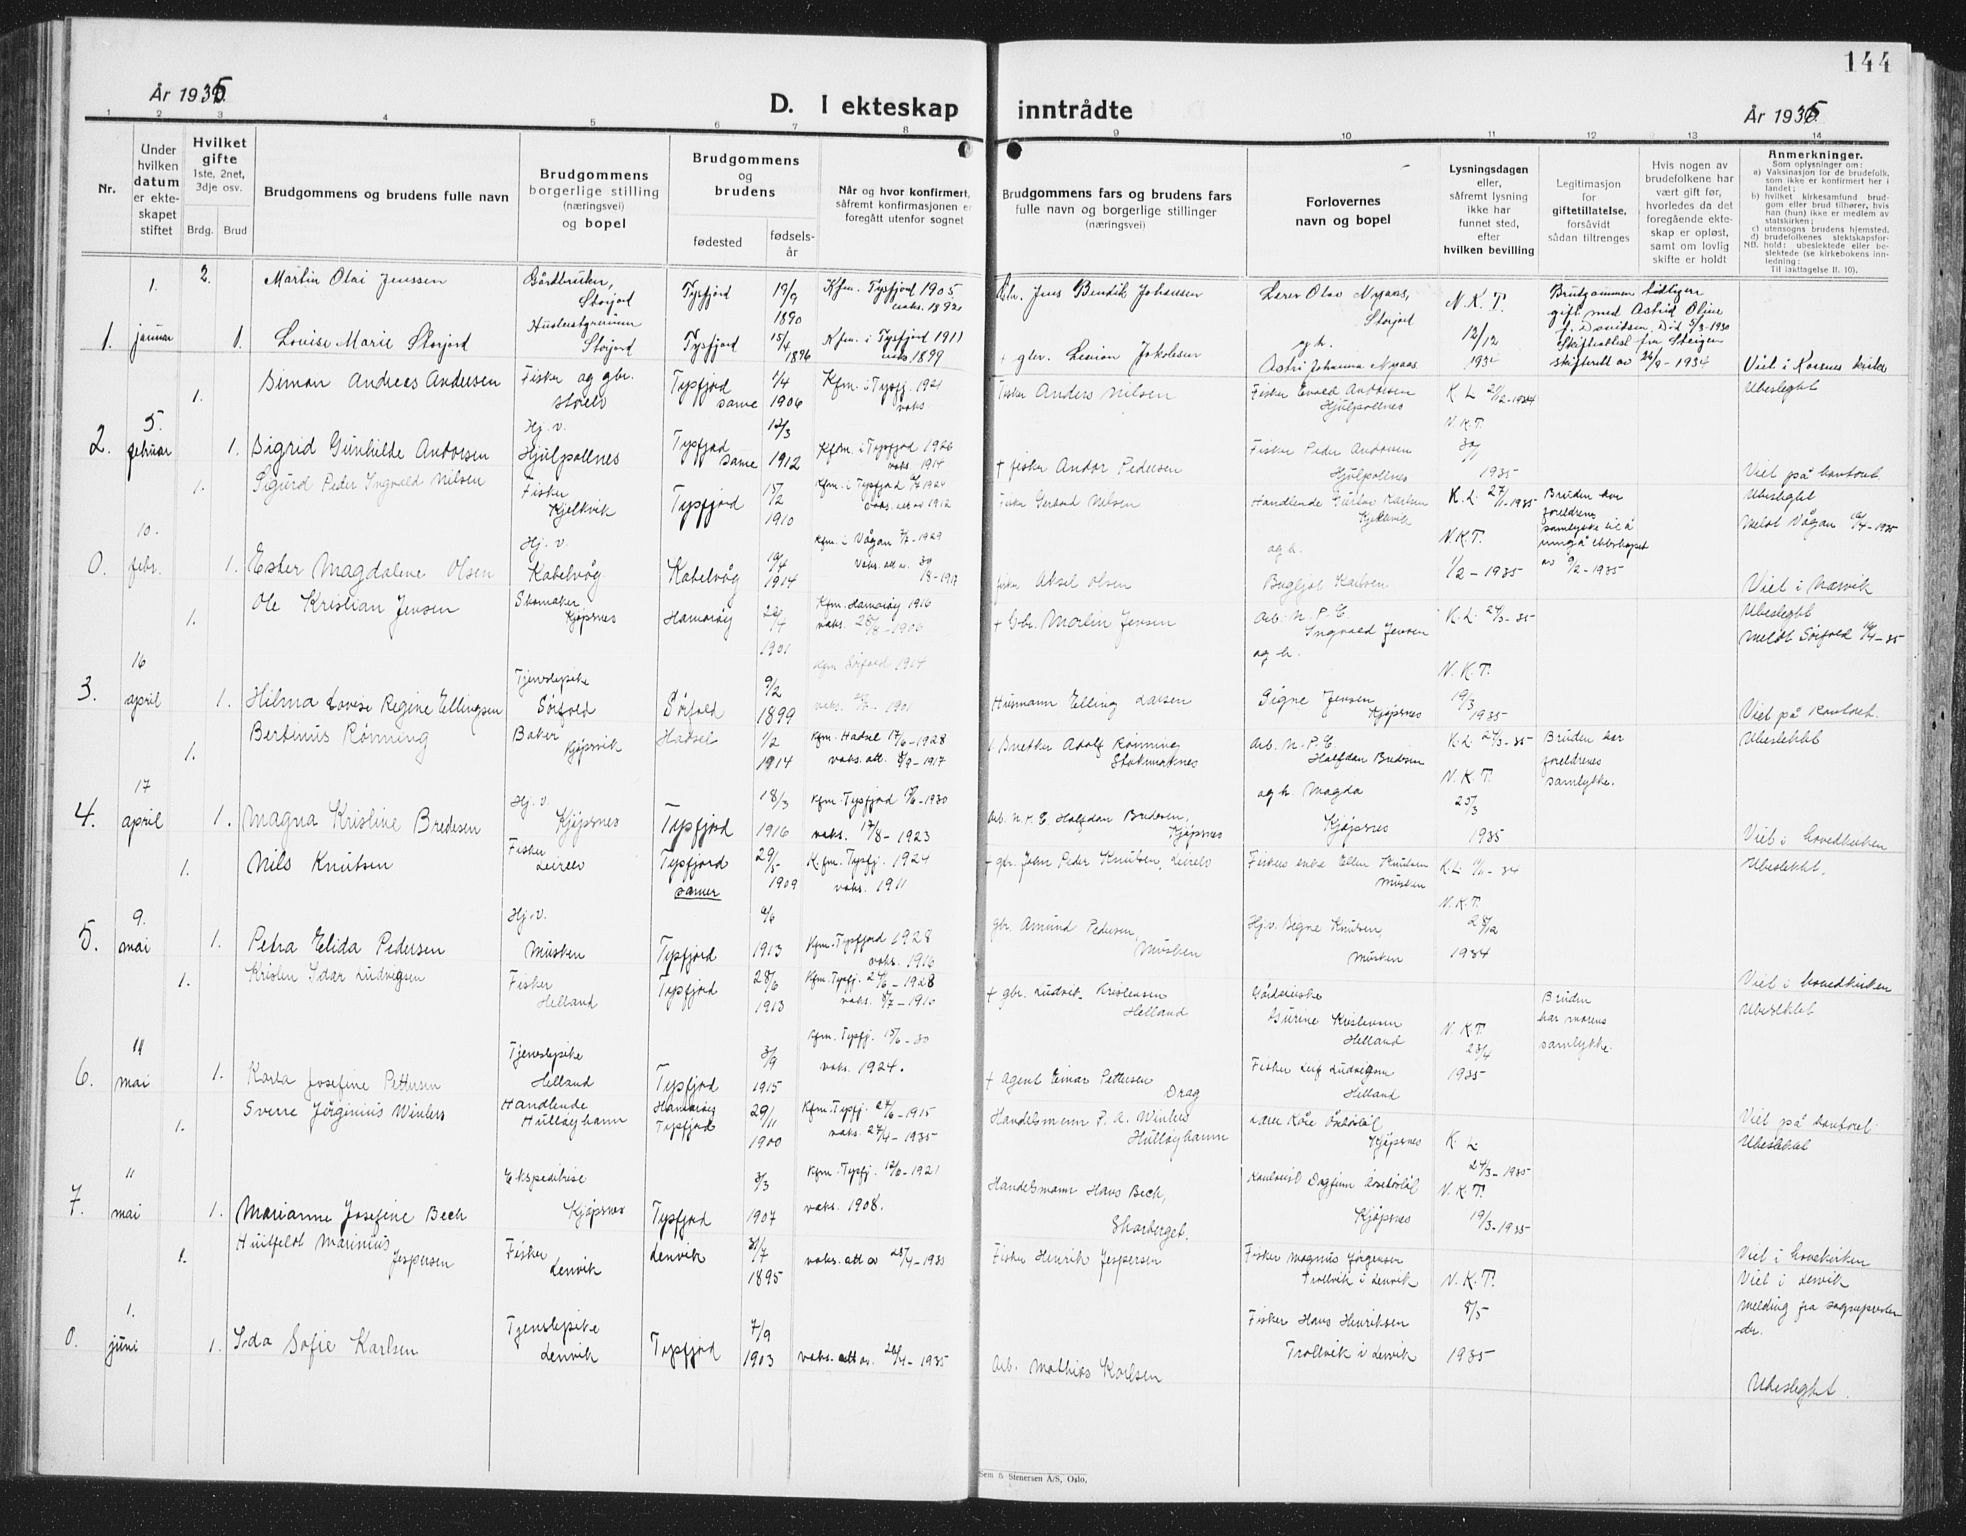 144
År 1935
D. I ekteskap inntrådte
År 1935
1 2 3 4 5 6 7 8 9 10 11 12 13 14
Nr.
Under hvilken datum er ekte-skapet stiftet
Hvilket gifte 1ste, 2net, 3dje osv.
Brdg. Brud
Brudgommens og brudens fulle navn
Brudgommens borgerlige stilling (næringsvei) og bopel
Brudgommens og brudens
fødested
fødsels-år
Når og hvor konfirmert, såfremt konfirmasjonen er foregått utenfor sognet
Brudgommens fars og brudens fars fulle navn og borgerlige stillinger (næringsvei)
Forlovernes navn og bopel
Lysningsdagen eller, såfremt lysning ikke har funnet sted, efter hvilken bevilling
Legitimasjon for giftetillatelse, forsåvidt sådan tiltrenges
Hvis nogen av brudefolkene har vært gift før, hvorledes da det foregående ekte-skap er opløst, samt om lovlig skifte er holdt
Anmerkninger.
Som oplysninger om:
a) Vaksinasjon for de brudefolk, som ikke er konfirmert her i landet;
b) hvilket kirkesamfund brud-gom eller brud tilhører, hvis han (hun) ikke er medlem av statskirken;
c) utensogns brudens hjemsted.
d) brudefolkenes slektskapsfor-hold: ubeslektede eller be-slektede (se kirkebokens inn-ledning:
NB. Til iakttagelse II. 10).
1. 2. Martin Olai Jenssen
Gårdbruker, Storjord
Tysfjord 19/9 1890
Kfm. Tysfjord 1905
vaks. 1892
Gbr. Jens Bendik Johansen
Lærer Olav Nymaas, Storjord
N. K. T.
Brudgommen tidligere gift med Astrid Oline f. Davidsen. Død 5/3-1930
1. januar 1. Lovise Marie Storjord
Storjord
Tysfjord 15/4 1896
Kfm. i Tysfjord 1911
vaks 1899
+ gbr. Simon Jakobsen
og h.
Astri Johanna Nymaas
12/12 1934
Skifteattest fra Steigen skifterett av 26/9-1934
Viet i Korsnes kirke
1. Simon Andreas Andersen
Fisker og gbr.
Tysfjord same 1/4 1906
Kfm. i Tysfj. 1921
vaks
Fisker Anders Nilsen
Fisker Evald Andersen
Hjulpollnes
K L 21/12-1934
Ubeslegtet
2. 5. februar 1. Sigrid Gunhilde Andorsen
Hj. v. Hjulpollnes
Tysfjord same 12/3 1912
Kfm. i Tysfjord 1926
vaks. 1914
+ fisker Andor Pedersen
Fisker Peder Andorsen
Hjulpollnes
N.K.T. 30/1 1935
Viet på kontoret.
1. Sigurd Peder Ingvald Nilsen
Fisker Kjelkvik
Tysfjord 15/2 1910
Kfm. i Tysfjord 1924
Fisker Gerhard Nilsen
Handlende Gustav Karlsen
Kjelkvik
K. L. 27/1-1935
Bruden har foreldrenes samtykke til å inngå ekteskapet av 9/2-1935
Ubeslegtet
Meldt Vågan 12/4-1935
0. 10. febr. 1. Ester Magdalene Olsen
Hj. v. Kabelvåg
Kabelvåg 19/4 1914
Kfm. i Vågan 1929
Vaks. att av 30/8-1917
Fisker Aksel Olsen
og h.
Bugljot Karlsen
N.K.T. 1/2-1935
Viet i Narvik
1. Ole Kristian Jensen
Skomaker Kjøpsnes
Hamarøy 22/7 1901
Kfm. Hamarøy 1916
vaks. 28/8-1906
+ Gbr. Martin Jensen
Arb. N. P. C. Ingvald Jensen
og h.
K. L. 27/3-35
Ubeslegtet
Meldt Sørfold 19/4-35
3. 16 april 1. Hilma Lovise Regine Ellingsen
Tjenestepike Sørfold
Sørfold 9/2 1899
Kfm Sørfold 1914
Husmann Elling Larsen
Signe Jensen
Kjøpsnes
N.K.T. 19/3 1935
Viet på kontoret.
1. Bertinus Rønning
Baker Kjøpsvik
Hadsel 1/2 1914
Kfm. Hadsel 17/6-1928
vaks. att. 8/9-1917
Snekker Adolf Rønning
Stokmarknes
Arb. N. P. C. Halfdan Bredesen
og h. Magda
K. L. 27/3-35
Bruden har foreldrenes samtykke.
Ubeslektet
4. 17 april 1. Magna Kristine Bredesen
Hj. v. Kjøpsnes
Tysfjord 18/3 1916
Kfm. Tysfjord 1930
vaks. 17/8-1923
Arb. N. P. C. Halfdan Bredesen, Kjøpsnes
Kjøpsnes
N.K.T. 25/3 1935
Viet i hovedkirken
1. Nils Knutsen
Fisker
Tysfjord samer 29/5 1909
K.fm. Tysfj. 1924
vaks. 1911
+ gbr. John Peder Knutsen
Fiskers enke Ellen Knutsen
Musken
Ubeslektet.
5. 9. mai 1. Petra Elida Pedersen
Hj. v. Musken
Tysfjord 1913
Kfm. Tysfjord 1928
vaks. 1916
gbr. Amund Pedersen, Musken
Hj.v. Signe Knutsen, Musken
N.K.T. 28/12 1934
Viet i hovedkirken
1. Kristen Idar Ludvigsen
Fisker Helland
Tysfjord 28/6 1913
Kfm. Tysfj. 24/6-1928
vaks. 8/7-1910
+ gbr. Ludvik Kristensen
Helland
Gårdbrukerske Gurine Kristensen
Helland
N.K.T. 23/4 1935
Bruden har morens samtykke.
Ubeslektet
6. 11 mai 1. Karla Josefine Pettersen
Tjenestepike Helland
Tysfjord 3/9 1915
Kfm. Tysfj. 15/6-30
vaks. 1924.
+ Agent Einar Pettersen
Drag
Fisker Leif Ludvigsen
Helland
Viet på kontoret.
1. Sverre Jørginius Winters
Handlende Hulløyhamn
Hamarøy Tysfjord 29/11 1900
Kfm. Tysfj. 27/6-1915
vaks. 27/4-1935
Handelsmann P. A. Winters
Hulløyhamn
Lærer Kåre
Kjøpsnes
K. L. 27/3-1935
Ubeslektet
7. 11 mai 1. Marianne Josefine Bech
Ekspeditrise Kjøpsnes
Tysfjord 3/3 1907
Kfm. Tysfj. 1921
vaks. 1908.
Handelsmann Hans Bech,
Skarberget.
Kontorist Dagfinn
Kjøpsnes
N.K.T. 19/3-1935
Viet i hovekirken
1. Huitfeldt Marinius Jespersen
Fisker Lenvik
Lenvik 31/7 1895
vaks. att av 25/4-1935
Fisker Henrik Jespersen
Fisker Magnus Jørgensen
Trollvik i Lenvik
N. K. T. 8/5 1935
Viet i Lenvik
Melding fra sogneprest
0. 1. juni 1. Ida Sofie Karlsen
Tjenestepike Lenvik
Tysfjord 7/9 1903
vaks. att av. 26/4-1935
Arb. Mathias Karlsen
Fisker Hans Henriksen
Trollvik i Lenvik
Ubeslegtet.
Sem & Stenersen A/S, Oslo.